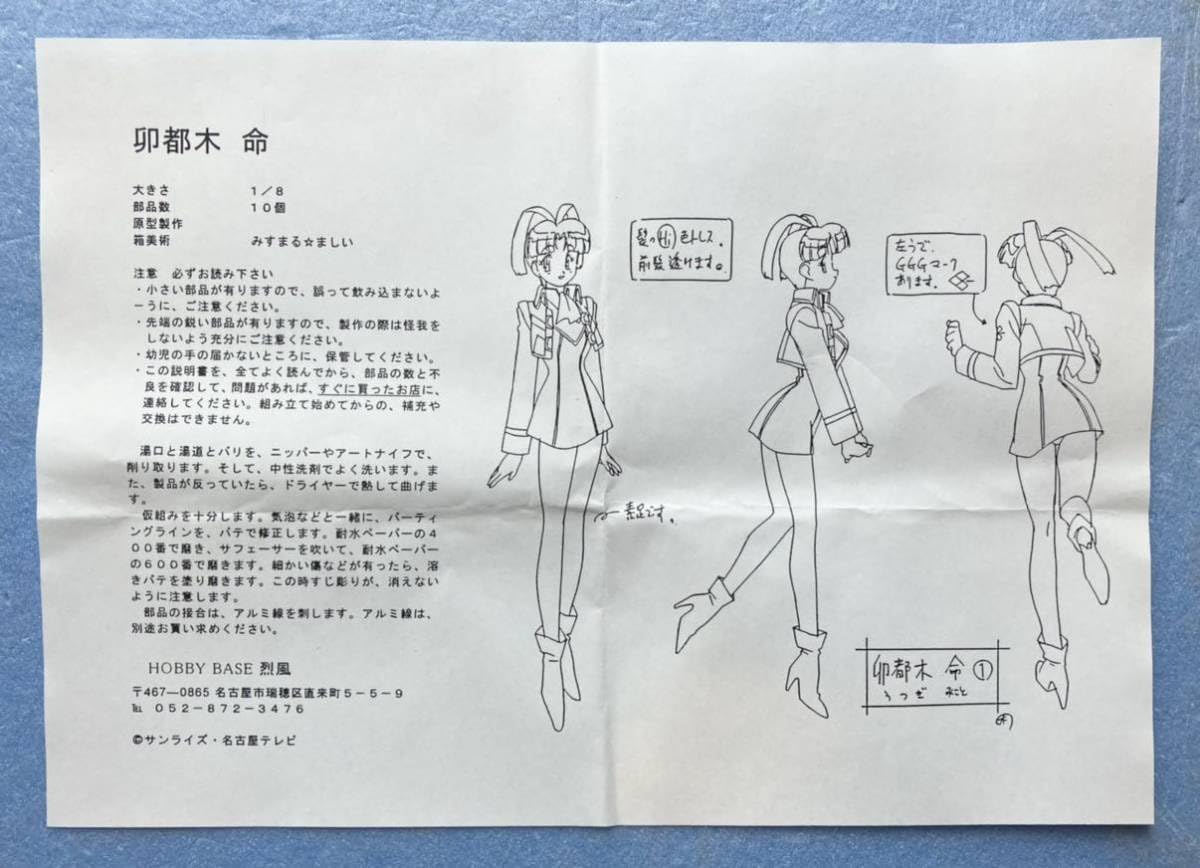 卯都木 命
大きさ 1/8
部品数 10個
原型製作
箱美術 みすまる☆ましい
注意 必ずお読み下さい
・小さい部品が有りますので、誤って飲み込まないよ
ーうに、ご注意ください。
・先端の鋭い部品が有りますので、製作の際は怪我を
しないよう充分にご注意ください。
・幼児の手の届かないところに、保管してください。
・この説明書を、全てよく読んでから、部品の数と不
良を確認して、問題があれば、すぐに買ったお店に、
連絡してください。組み立て始めてからの、補充や
交換はできません。
湯口と湯道とバリを、ニッパーやアートナイフで、
削り取ります。そして、中性洗剤でよく洗います。ま
た、製品が反っていたら、ドライヤーで熱して曲げま
す。
仮組みを十分します。気泡などと一緒に、パーティ
ングラインを、パテで修正します。耐水ペーパーの4
00番で磨き、サフェーサーを吹いて、耐水ペーパー
の600番で磨きます。細かい傷などが有ったら、溶
きパテを塗り磨きます。この時すじ彫りが、消えない
ように注意します。
部品の接合は、アルミ線を刺します。アルミ線は、
別途お買い求めください。
HOBBY BASE 烈風
〒467―0865 名古屋市瑞穂区直来町5-5-9
℡ 052-872-3476
©サンライズ・名古屋テレビ
髪のHi色トレス。
前髪透けます。
左うで、
GGGマーク
あります。
素足です。
卯都木 命 ①
うつぎ みこと